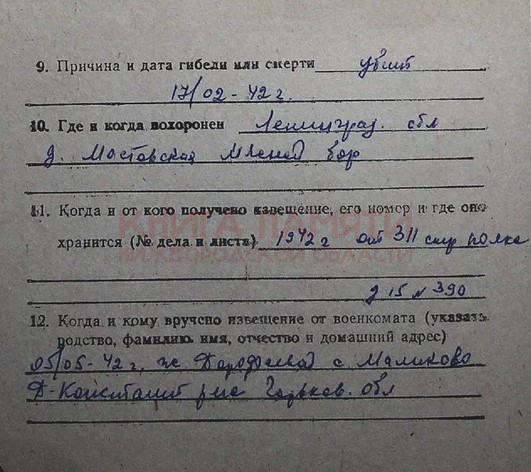 9. Причина и дата гибели или смерти убит
17/02-42 г.
10. Где и когда похоронен Ленинград. обл
д. Мостовская Мясной бор
11. Когда и от кого получено извещение, его номер и где оно
хранится (№ дела и листа) 1942 г от 311 стр полка
д 15 № 390
12. Когда и кому вручено извещение от военкомата (указать
родство, фамилию, имя, отчество и домашний адрес)
05/05-42 г, же Дорофеевой с Маликово
Д-Константин р-на Горьков. обл
КНИГА ПАМЯТИ
НИЖЕГОРОДСКОЙ ОБЛАСТИ